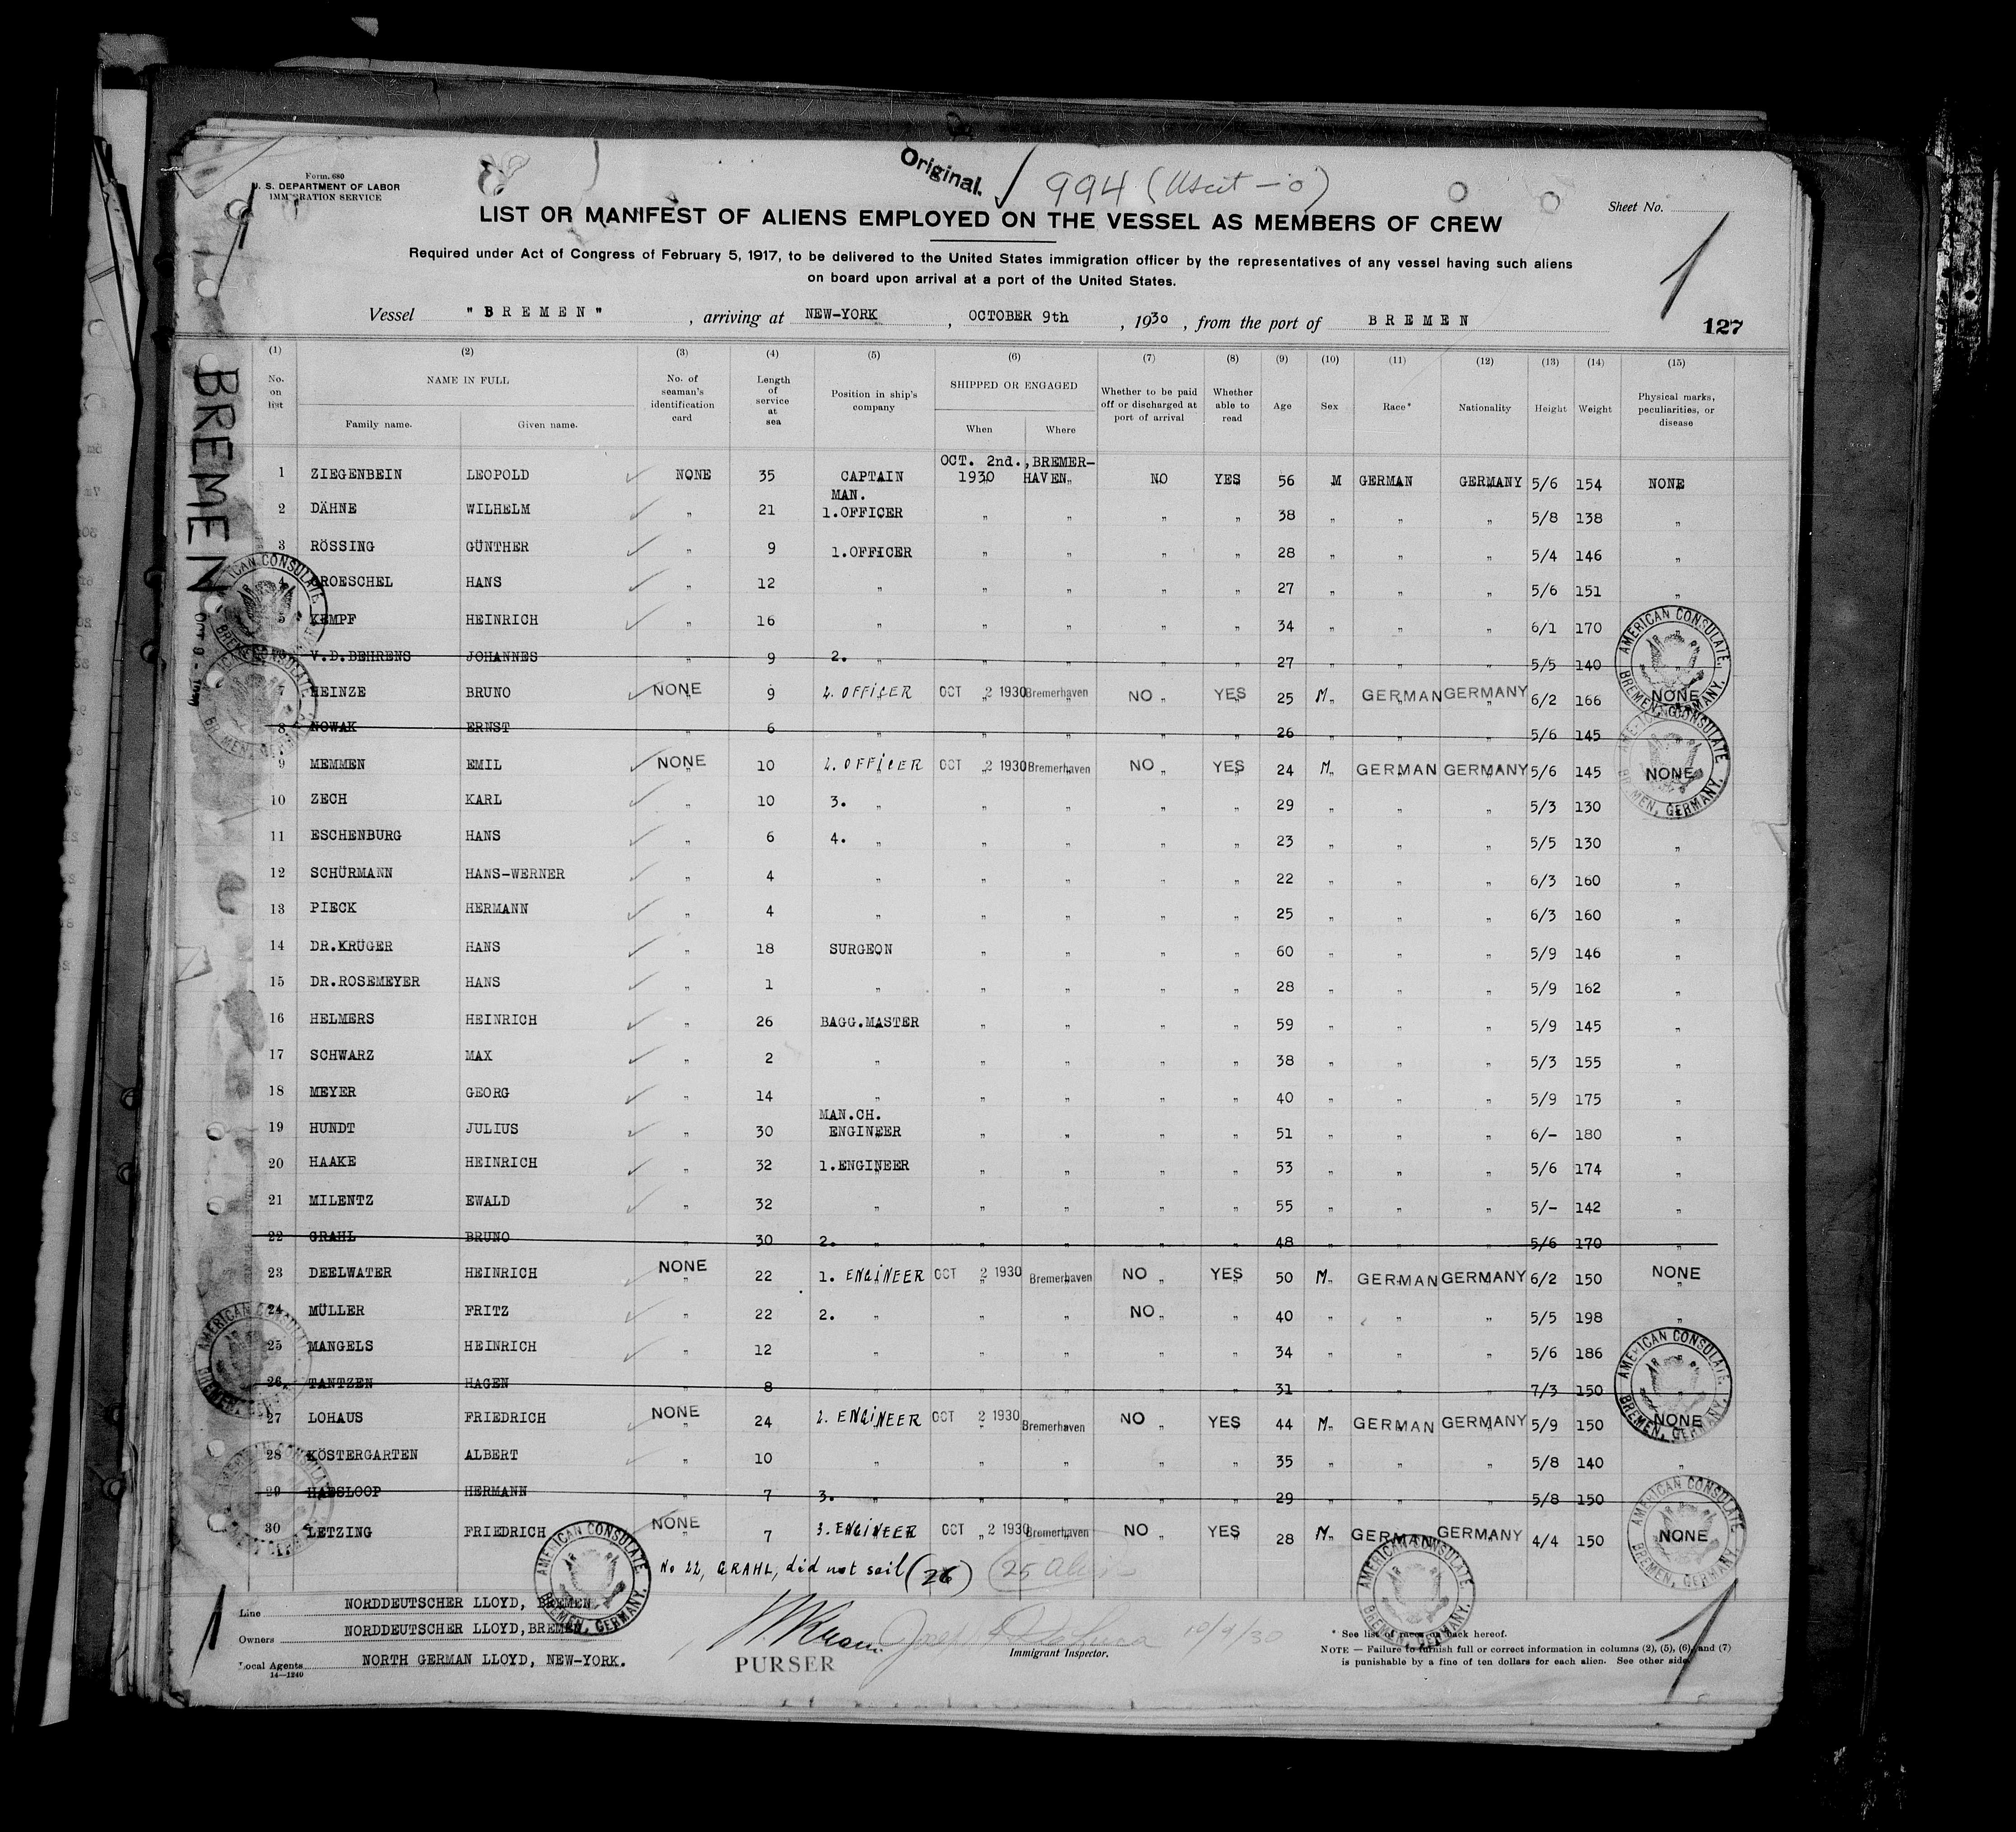 Form 680
U. S. DEPARTMENT OF LABOR
IMMIGRATION SERVICE
Original.
994
LIST OR MANIFEST OF ALIENS EMPLOYED ON THE VESSEL AS MEMBERS OF CREW
Sheet No.
1
Required under Act of Congress of February 5, 1917, to be delivered to the United States immigration officer by the representatives of any vessel having such aliens
on board upon arrival at a port of the United States.
Vessel "BREMEN", arriving at NEW-YORK, OCTOBER 9th, 1930, from the port of BREMEN
127
BREMEN
(1) (2) (3) (4) (5) (6) (7) (8) (9) (10) (11) (12) (13) (14) (15)
No. on list
NAME IN FULL
Family name. Given name.
No. of seaman's identification card
Length of service at sea
Position in ship's company
SHIPPED OR ENGAGED
When Where
Whether to be paid off or discharged at port of arrival
Whether able to read
Age Sex Race* Nationality Height Weight
Physical marks, peculiarities, or disease
1 ZIEGENBEIN LEOPOLD NONE 35 CAPTAIN OCT. 2nd., 1930 BREMER-HAVEN NO YES 56 M GERMAN GERMANY 5/6 154 NONE
2 DÄHNE WILHELM " 21 MAN. 1.OFFICER " " " " 38 " " " 5/8 138 "
3 RÖSSING GÜNTHER " 9 1.OFFICER " " " " 28 " " " 5/4 146 "
4 HANS " 12 " " " " " 27 " " " 5/6 151 "
5 KEMPF HEINRICH " 16 " " " " " 34 " " " 6/1 170
V.D.BEHRENS JOHANNES " 9 2. " " " " " 27 " " " 5/5 140 "
7 HEINZE BRUNO NONE 9 2. OFFICER OCT 2 1930 Bremerhaven NO YES 25 M GERMAN GERMANY 6/2 166 NONE
8 NOWAK ERNST " 6 " " " " " 26 " " " 5/6 145
9 MEMMEN EMIL NONE 10 2. OFFICER OCT 2 1930 Bremerhaven NO YES 24 M GERMAN GERMANY 5/6 145 NONE
10 ZECH KARL " 10 3. " " " " " 29 " " " 5/3 130
11 ESCHENBURG HANS " 6 4. " " " " " 23 " " " 5/5 130 "
12 SCHÜRMANN HANS-WERNER " 4 " " " " " 22 " " " 6/3 160 "
13 PIECK HERMANN " 4 " " " " " 25 " " " 6/3 160 "
14 DR.KRÜGER HANS " 18 SURGEON " " " " 60 " " " 5/9 146 "
15 DR.ROSEMEYER HANS " 1 " " " " " 28 " " " 5/9 162 "
16 HELMERS HEINRICH " 26 BAGG.MASTER " " " " 59 " " " 5/9 145 "
17 SCHWARZ MAX " 2 " " " " " 38 " " " 5/3 155 "
18 MEYER GEORG " 14 " " " " " 40 " " " 5/9 175 "
19 HUNDT JULIUS " 30 MAN.CH. ENGINEER " " " " 51 " " " 6/- 180 "
20 HAAKE HEINRICH " 32 1.ENGINEER " " " " 53 " " " 5/6 174 "
21 MILENTZ EWALD " 32 " " " " " 55 " " " 5/- 142 "
22 GRAHL BRUNO " 30 2. " " " " " 48 " " " 5/6 170 "
23 DEELWATER HEINRICH NONE 22 1. ENGINEER OCT 2 1930 Bremerhaven NO YES 50 M GERMAN GERMANY 6/2 150 NONE
24 MÜLLER FRITZ " 22 2. " " " NO " 40 " " " 5/5 198 "
25 MANGELS HEINRICH " 12 " " " " " 34 " " " 5/6 186
26 TANTZEN HAGEN " 8 " " " " " 31 " " " 7/3 150 "
27 LOHAUS FRIEDRICH NONE 24 2. ENGINEER OCT 2 1930 Bremerhaven NO YES 44 M GERMAN GERMANY 5/9 150 NONE
28 KÖSTERGARTEN ALBERT " 10 " " " " " 35 " " " 5/8 140 "
29 HERMANN " 7 3. " " " " " 29 " " " 5/8 150
30 LETZING FRIEDRICH NONE 7 3. ENGINEER OCT 2 1930 Bremerhaven NO YES 28 M GERMAN GERMANY 4/4 150 NONE
No 22, GRAHL, did not sail (26) (25
AMERICAN CONSULATE, BREMEN, GERMANY.
Line NORDDEUTSCHER LLOYD, BREMEN
Owners NORDDEUTSCHER LLOYD, BREMEN
Local Agents NORTH GERMAN LLOYD, NEW-YORK.
14—1240
PURSER
10/9/30
Immigrant Inspector.
* See list of races on back hereof.
NOTE — Failure to furnish full or correct information in columns (2), (5), (6), and (7)
is punishable by a fine of ten dollars for each alien. See other side.